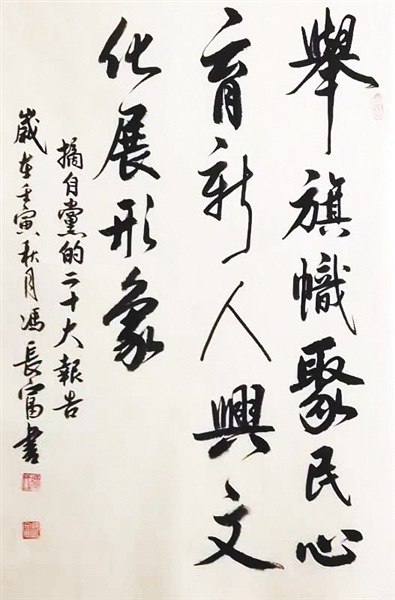 舉旗幟聚民心
育新人興文
化展形象
摘自黨的二十大報告
歲在壬寅秋月馮長富書